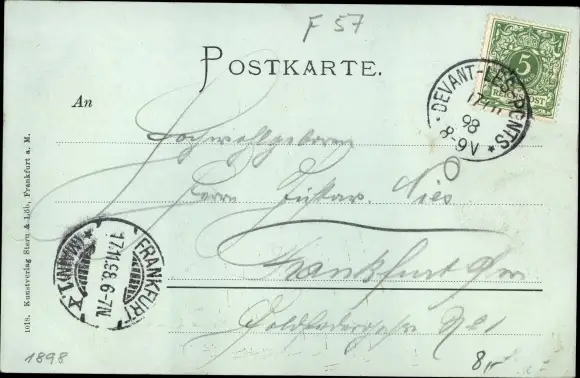 F 57
POSTKARTE.
An
5
REICHSPOST
DEVANT-LES-PONTS
17/11
98
8-9V
Hochwohlgeboren
Herrn Gustav Nies
Frankfurt a/m
No 1
FRANKFURT (MAIN) 1.
17.11.98.6-7N.
X
1018. Kunstverlag Stern & Löb, Frankfurt a. M.
1898
8,-